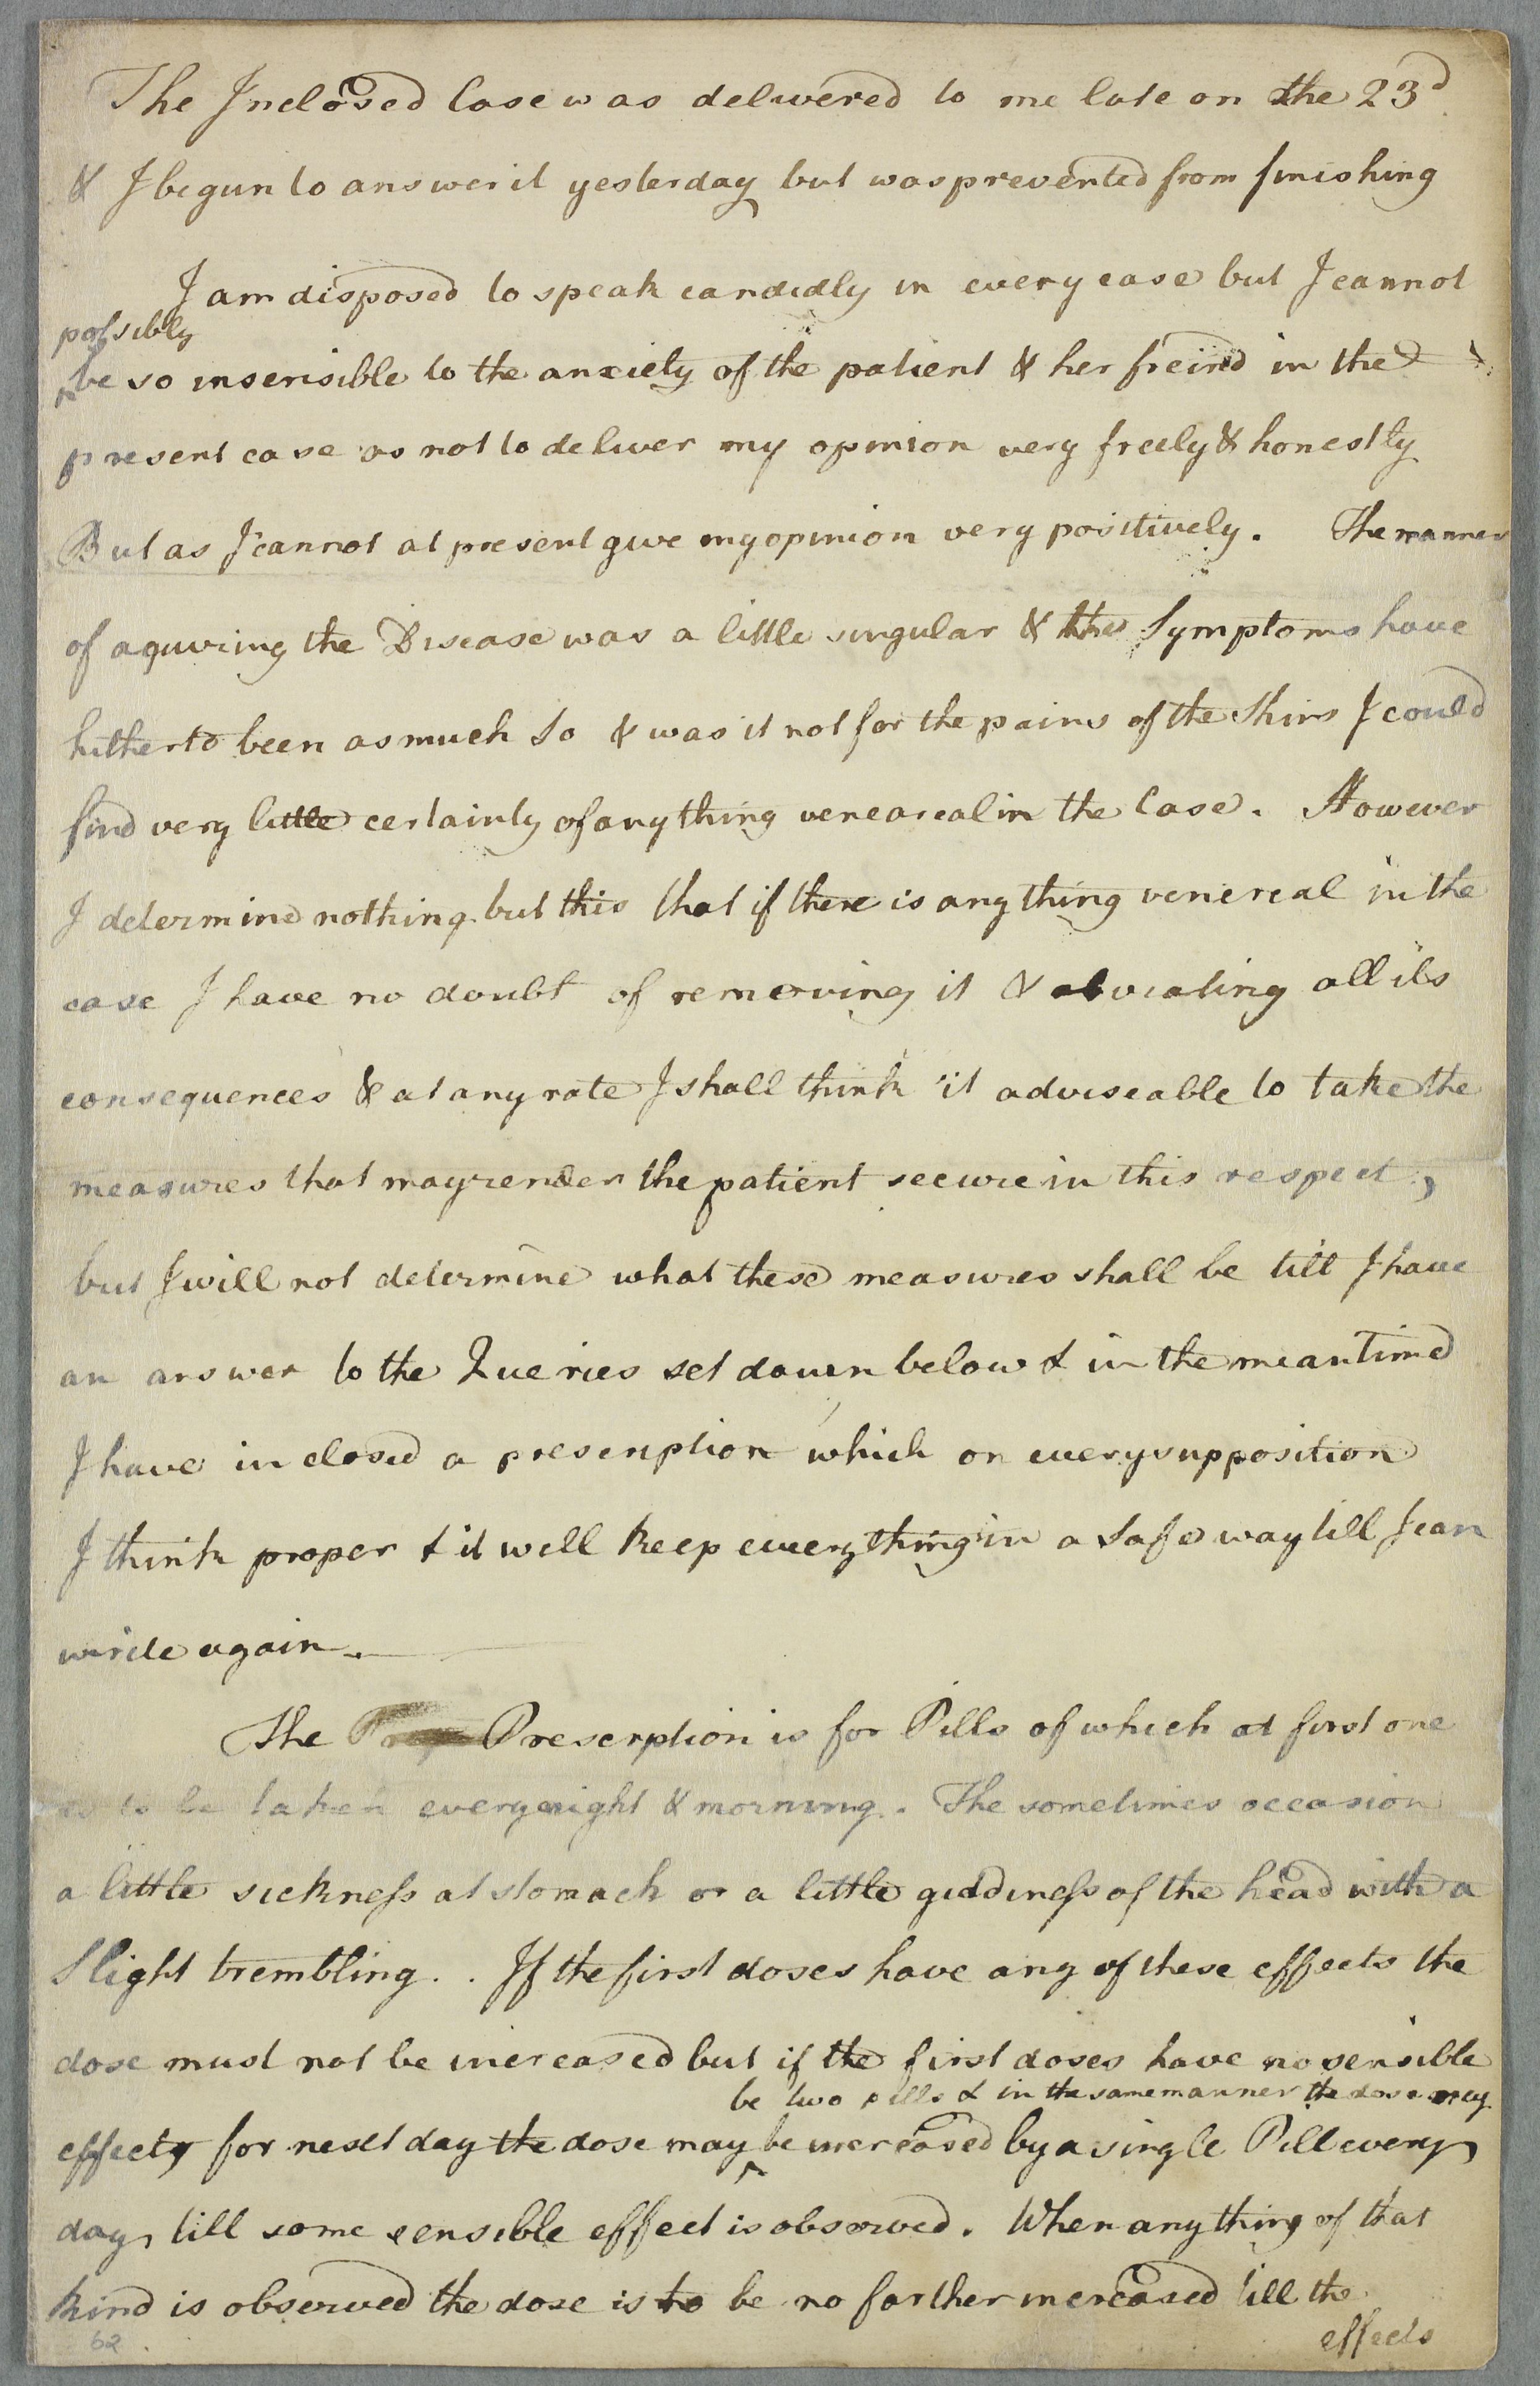 The Inclosed Case was delivered to me late on the 23d
& I begun to answer it yesterday but was prevented from finishing
I am disposed to speak candidly in every case but I cannot
possibly
be so insensible to the anxiety of the patient & her freind in the
present case as not to deliver my opinion very freely & honestly
But as I cannot at present give my opinion very positively. The manner
of aquiring the Disease was a little singular & the Symptoms have
hitherto been as much so & was it not for the pains of the Shins I could
find very little certainly of any thing veneareal in the Case. However
I determine nothing but this that if there is any thing venereal in the
case I have no doubt of removing it & obviating all its
consequences & at any rate I shall think it adviseable to take the
measures that may render the patient secure in this respect,
but I will not determine what these measures shall be till I have
an answer to the Queries set down below & in the mean time
I have inclosed a prescription which on every supposition
I think proper & it will keep every thing in a Safe way till I can
write again.
The Prescription is for Pills of which at first one
is to be taken every night & morning. The sometimes occasion
a little sickness at stomach or a little giddiness of the head with a
Slight trembling. . If the first doses have any of these effects the
dose must not be increased but if the first doses have no sensible
be two pills & in the same manner the dose may
effects for next day the dose may be increased by a single Pill every
day, till some sensible effect is observed. When any thing of that
kind is observed the dose is to be no farther increased till the
effects
62